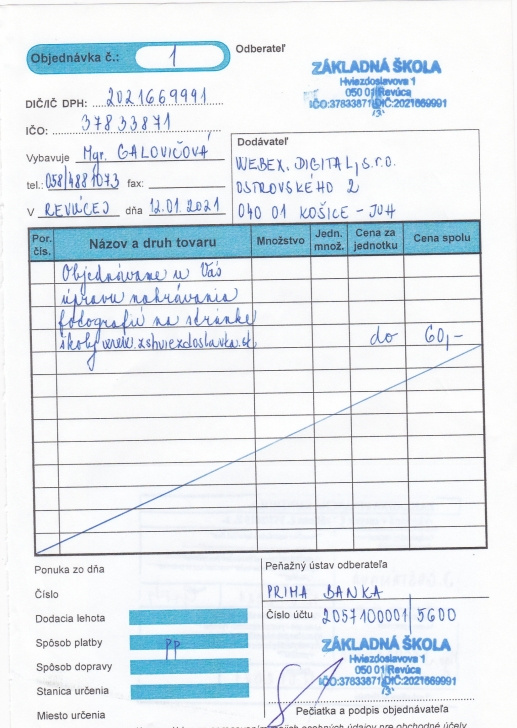 Objednávka č.: 1
Odberateľ
ZÁKLADNÁ ŠKOLA
Hviezdoslavova 1
050 01 Revúca
IČO:37833871 DIČ:2021669991
/3/
DIČ/IČ DPH: 2021669991
IČO: 37833871
Vybavuje Mgr. GALOVIČOVÁ
tel.: 058/4881073 fax:
V REVÚCEJ dňa 12.01.2021
Dodávateľ
WEBEX.DIGITAL, s.r.o.
OSTROVSKÉHO 2
040 01 KOŠICE - JUH
Por. čís. Názov a druh tovaru Množstvo Jedn. množ. Cena za jednotku Cena spolu
Objednávame u Vás
úpravu nahrávania
fotografií na stránke
školy www.zshviezdoslavka.sk do 60,-
Ponuka zo dňa
Číslo
Dodacia lehota
Spôsob platby PP
Spôsob dopravy
Stanica určenia
Miesto určenia
Peňažný ústav odberateľa
PRIMA BANKA
Číslo účtu 2057100001/5600
ZÁKLADNÁ ŠKOLA
Hviezdoslavova 1
050 01 Revúca
IČO:37833871 DIČ:2021669991
/3/
Pečiatka a podpis objednávateľa
osobných údajov pre obchodné účely